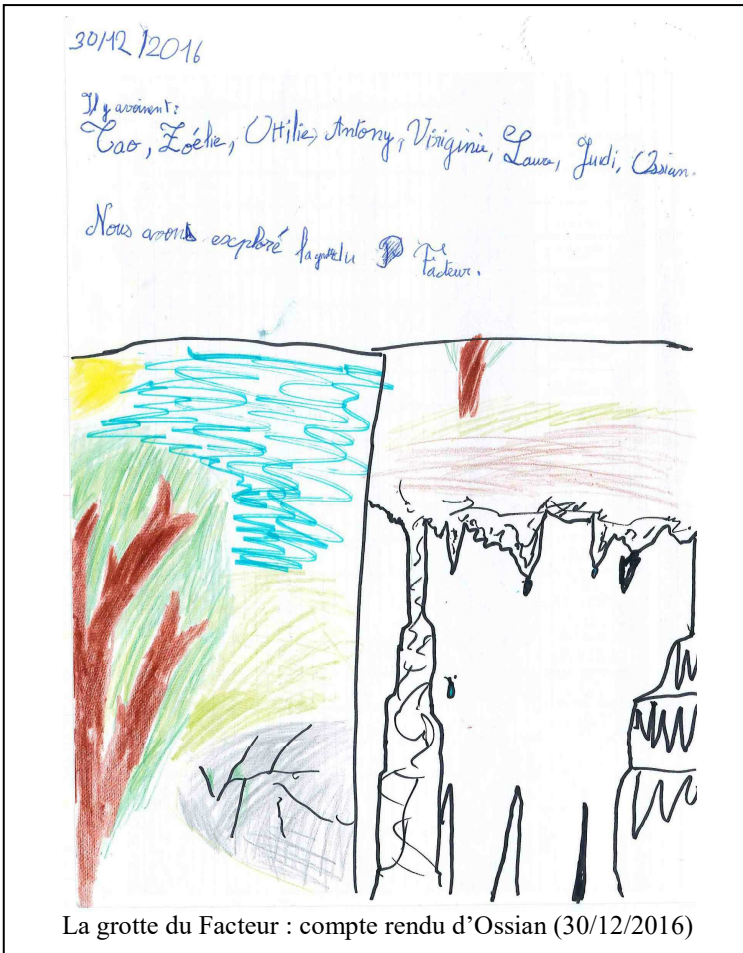 30/12/2016
Il y avaient :
Tao, Zoélie, Ottilie, Antony, Viriginie, Laura, Judi, Ossian.
Nous avons exploré la grotte du Facteur.
La grotte du Facteur : compte rendu d’Ossian (30/12/2016)